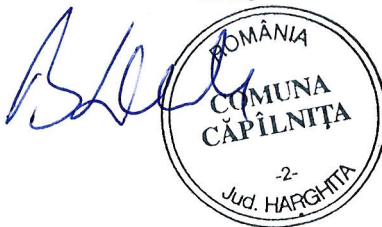 ROMÂNIA
COMUNA
CĂPÎLNIȚA
-2-
Jud. HARGHITA